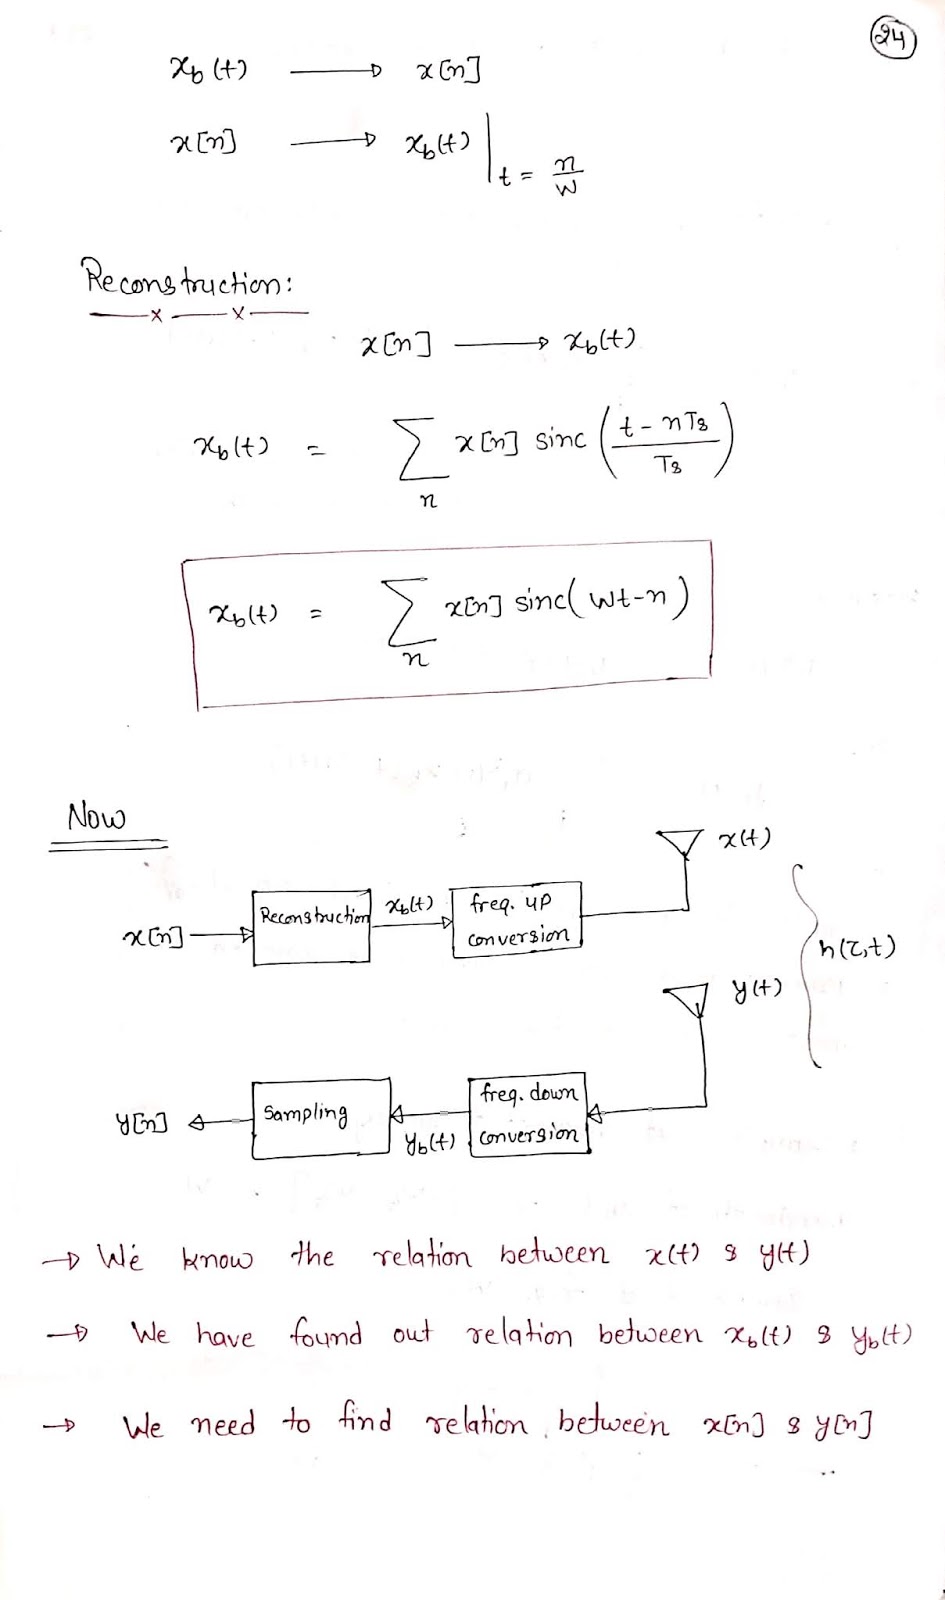 24
x_b(t) → x[n]
x[n] → x_b(t) |_{t = n/W}
Reconstruction:
x[n] → x_b(t)
x_b(t) = ∑_n x[n] sinc((t - nTs)/Ts)
x_b(t) = ∑_n x[n] sinc(Wt-n)
Now
x[n] → Reconstruction x_b(t) → freq. up conversion x(t)
h(τ,t)
y(t)
y[n] ← Sampling ← y_b(t) freq. down conversion ←
→ We know the relation between x(t) & y(t)
→ We have found out relation between x_b(t) & y_b(t)
→ We need to find relation between x[n] & y[n]